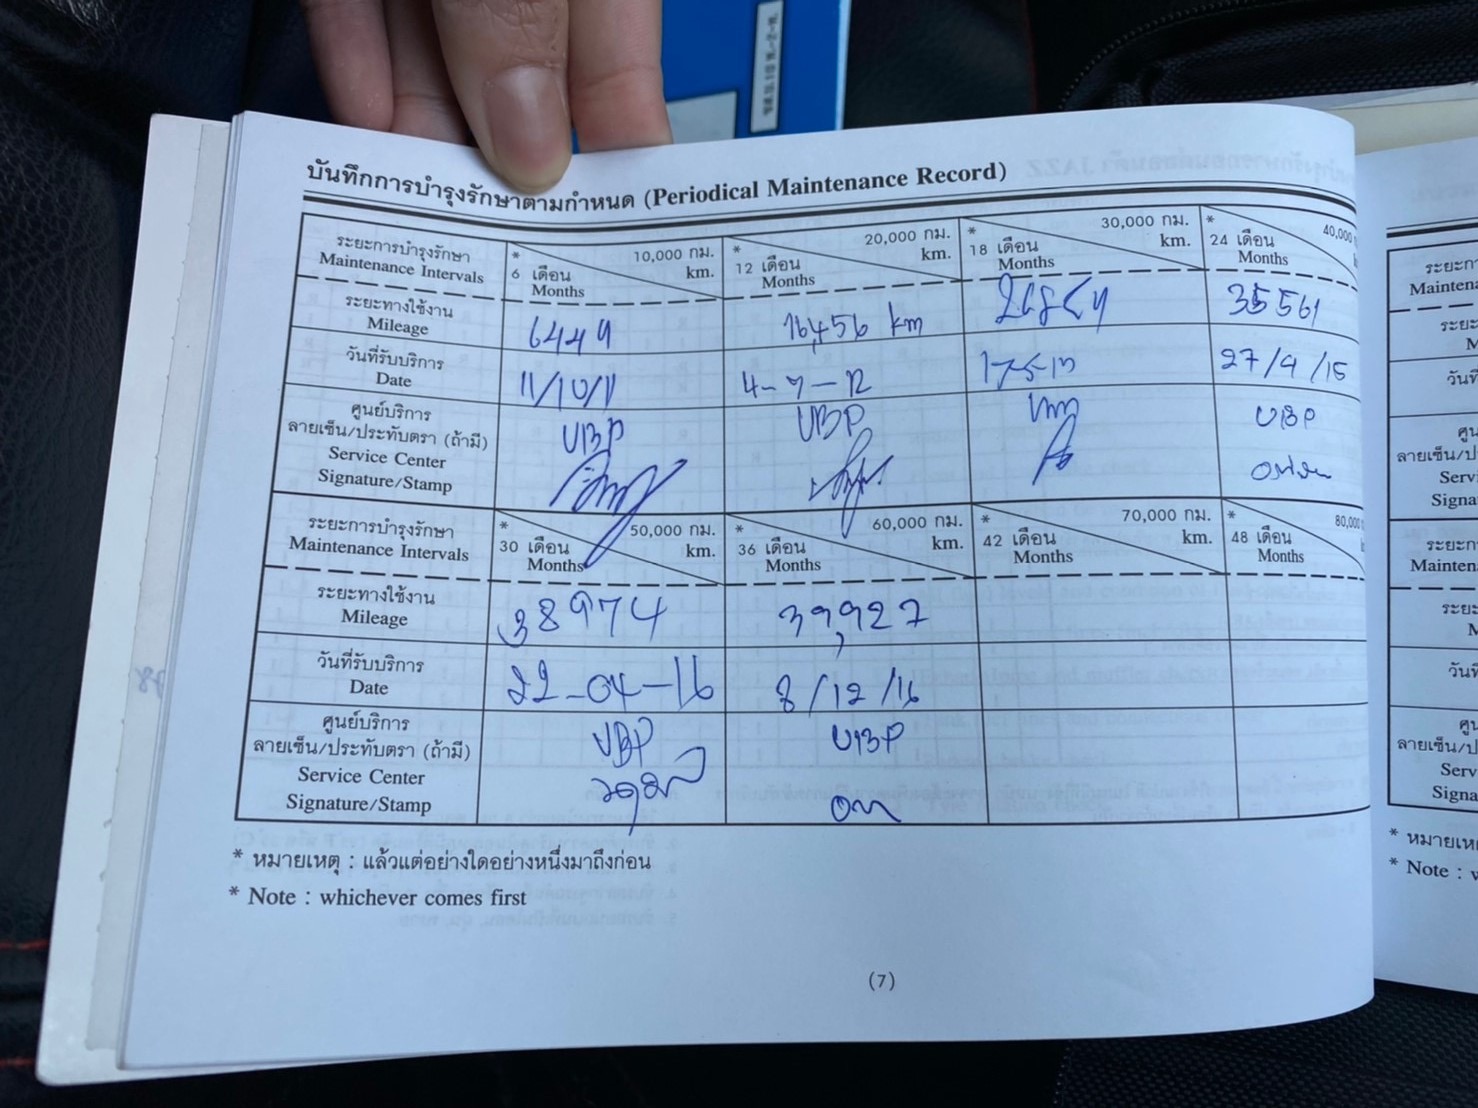 บันทึกการบำรุงรักษาตามกำหนด (Periodical Maintenance Record)
ระยะการบำรุงรักษา
Maintenance Intervals
* 10,000 กม.
km.
6 เดือน
Months
* 20,000 กม.
km.
12 เดือน
Months
* 30,000 กม.
km.
18 เดือน
Months
* 40,000
24 เดือน
Months
ระยะทางใช้งาน
Mileage
6449
16,456 km
35561
วันที่รับบริการ
Date
11/10/11
4-7-12
17-5-13
27/4/15
ศูนย์บริการ
ลายเซ็น/ประทับตรา (ถ้ามี)
Service Center
Signature/Stamp
UBP
UBP
UBP
ระยะการบำรุงรักษา
Maintenance Intervals
* 50,000 กม.
km.
30 เดือน
Months
* 60,000 กม.
km.
36 เดือน
Months
* 70,000 กม.
km.
42 เดือน
Months
* 80,000
48 เดือน
Months
ระยะทางใช้งาน
Mileage
38974
39,927
วันที่รับบริการ
Date
22-04-16
8/12/16
ศูนย์บริการ
ลายเซ็น/ประทับตรา (ถ้ามี)
Service Center
Signature/Stamp
UBP
UBP
* หมายเหตุ : แล้วแต่อย่างใดอย่างหนึ่งมาถึงก่อน
* Note : whichever comes first
(7)